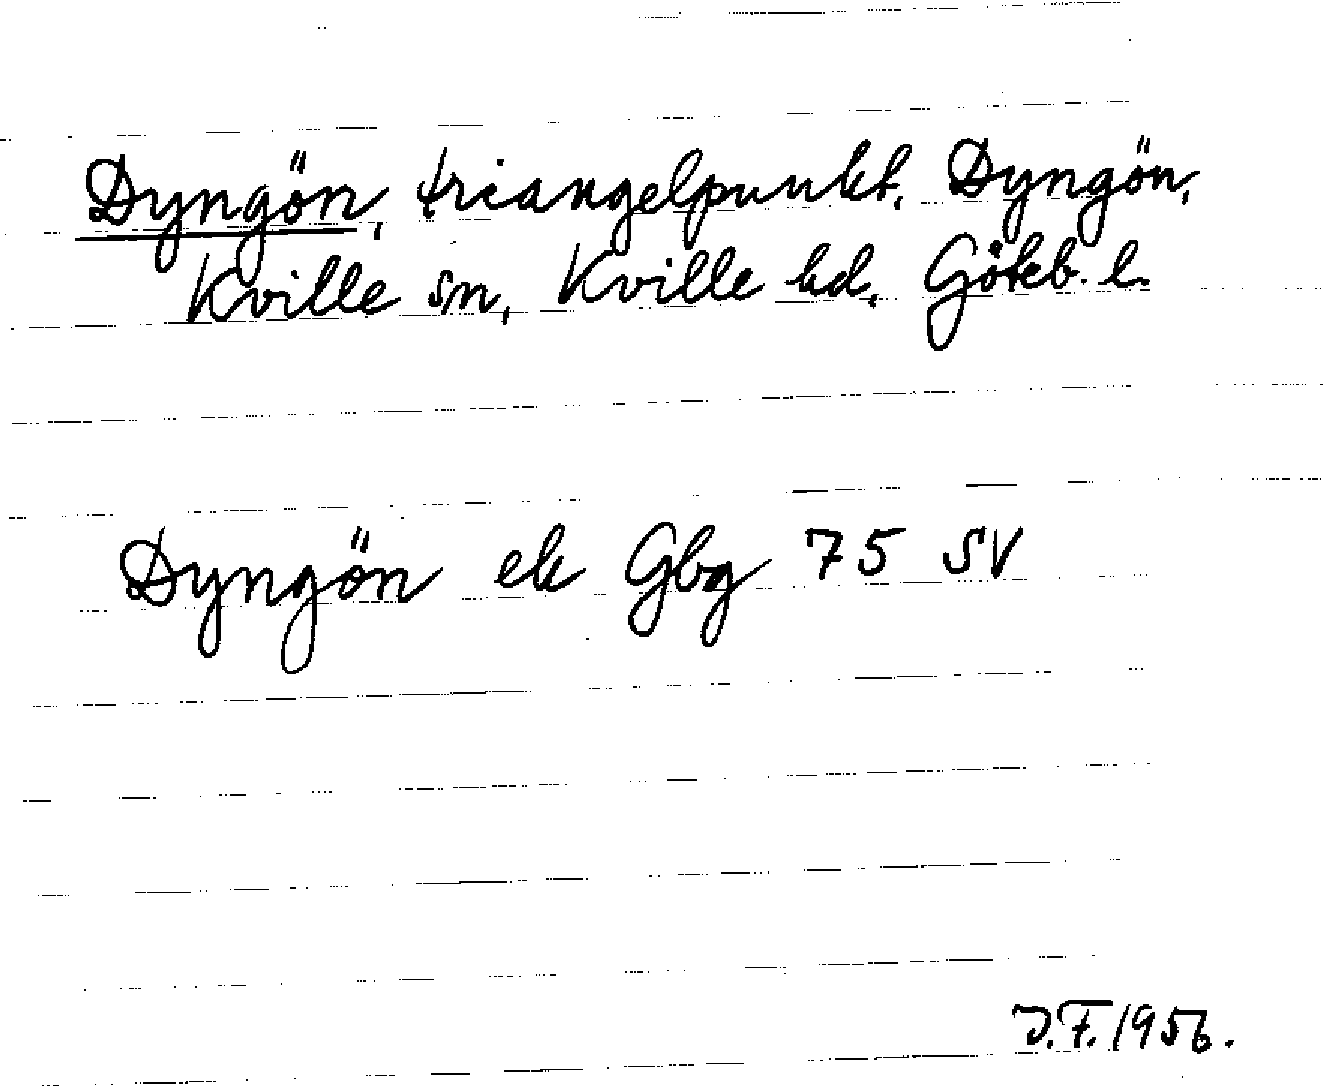 Dyngön, triangelpunkt, Dyngön,
Kville sn, Kville hd, Göteb. l.
Dyngön ek Gbg 75 SV
J.F. 1956.